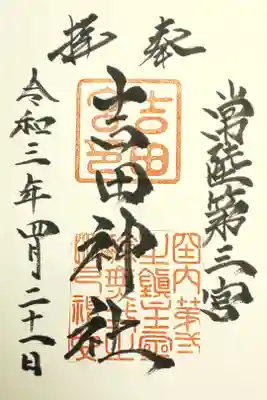 奉拝
常陸第三宮
吉田神社
令和三年四月二十一日